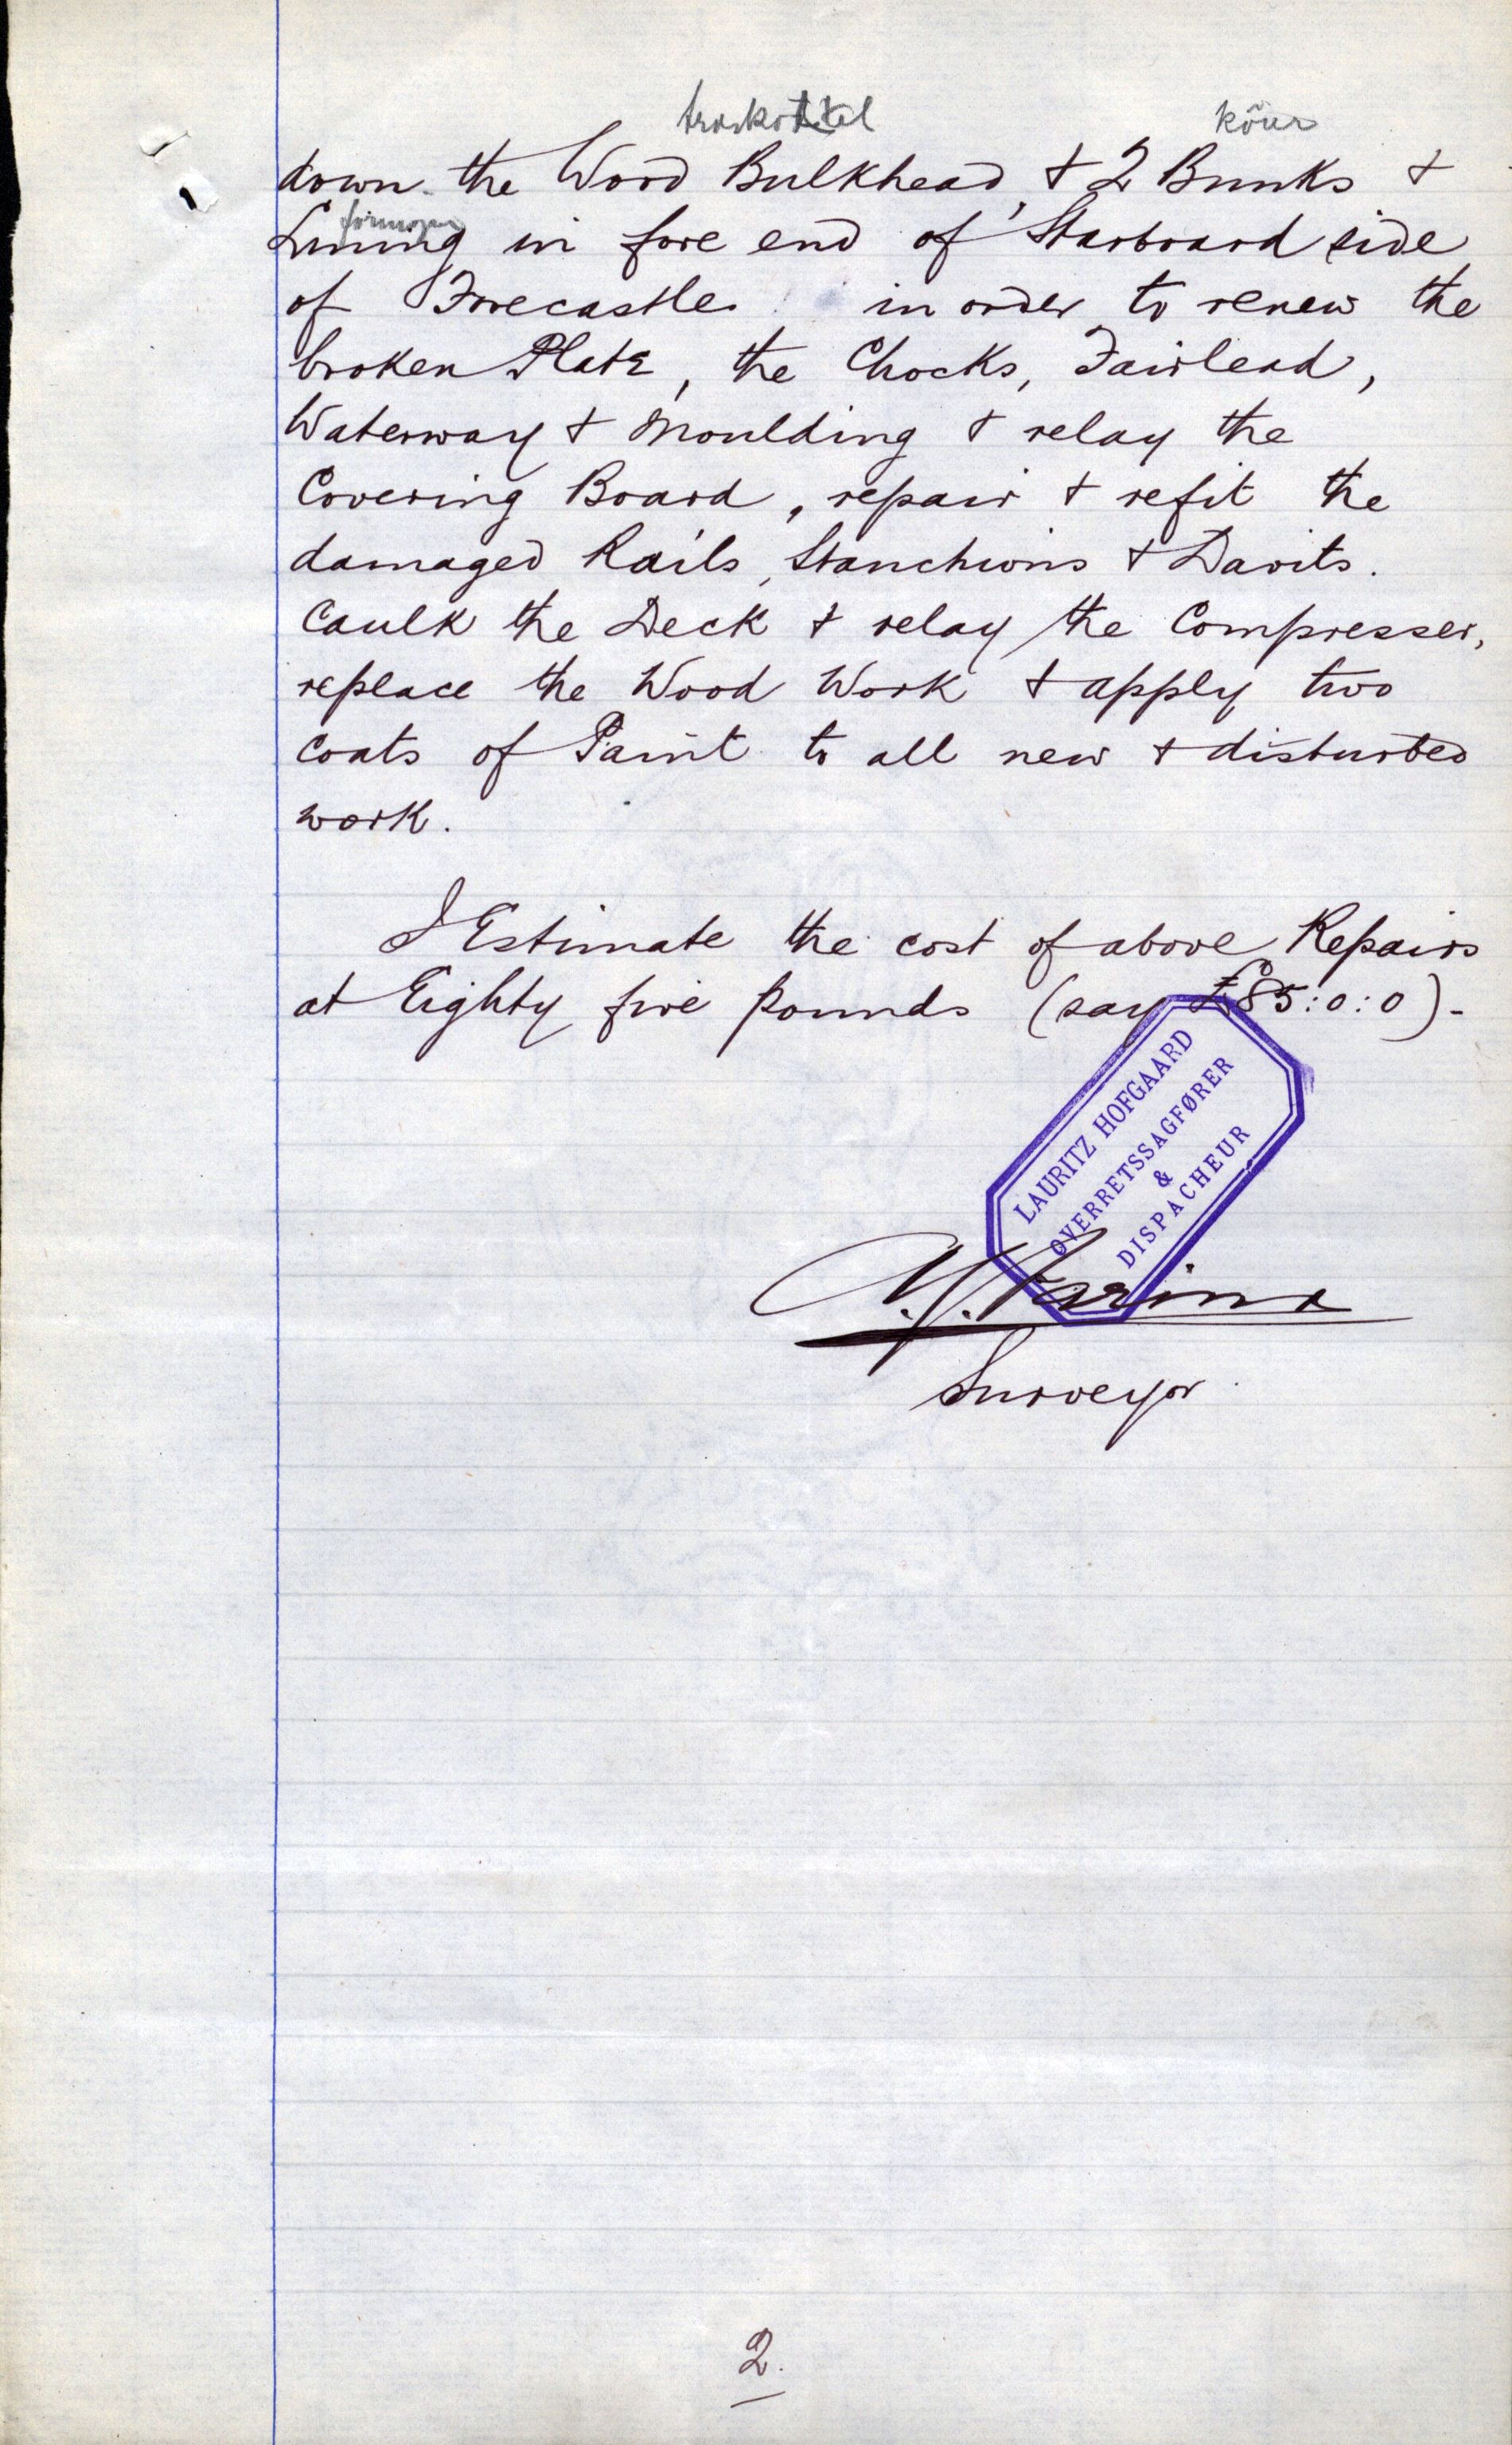 köus
down the Wood Bulkhead, & 2 Bunks &
Lining in fore end of Starboard side
of Forecastle in order to renew the
broken Plate, the Chocks, Fairlead,
Waterway & Moulding & relay the
Covering Board, repair & refit the
damaged Rails, Stanchions & Davits.
Caulk the Deck & relay the Compresser,
replace the Wood Work & apply two
coats of Paint to all new & disturbed
work.
I Estimate the cost of above Repairs
at Eighty five pounds (say £85:0:0).-
LAURITZ HOFGAARD
OVERRETSSAGFØRER
&
DISPACHEUR
Surveyor
2.